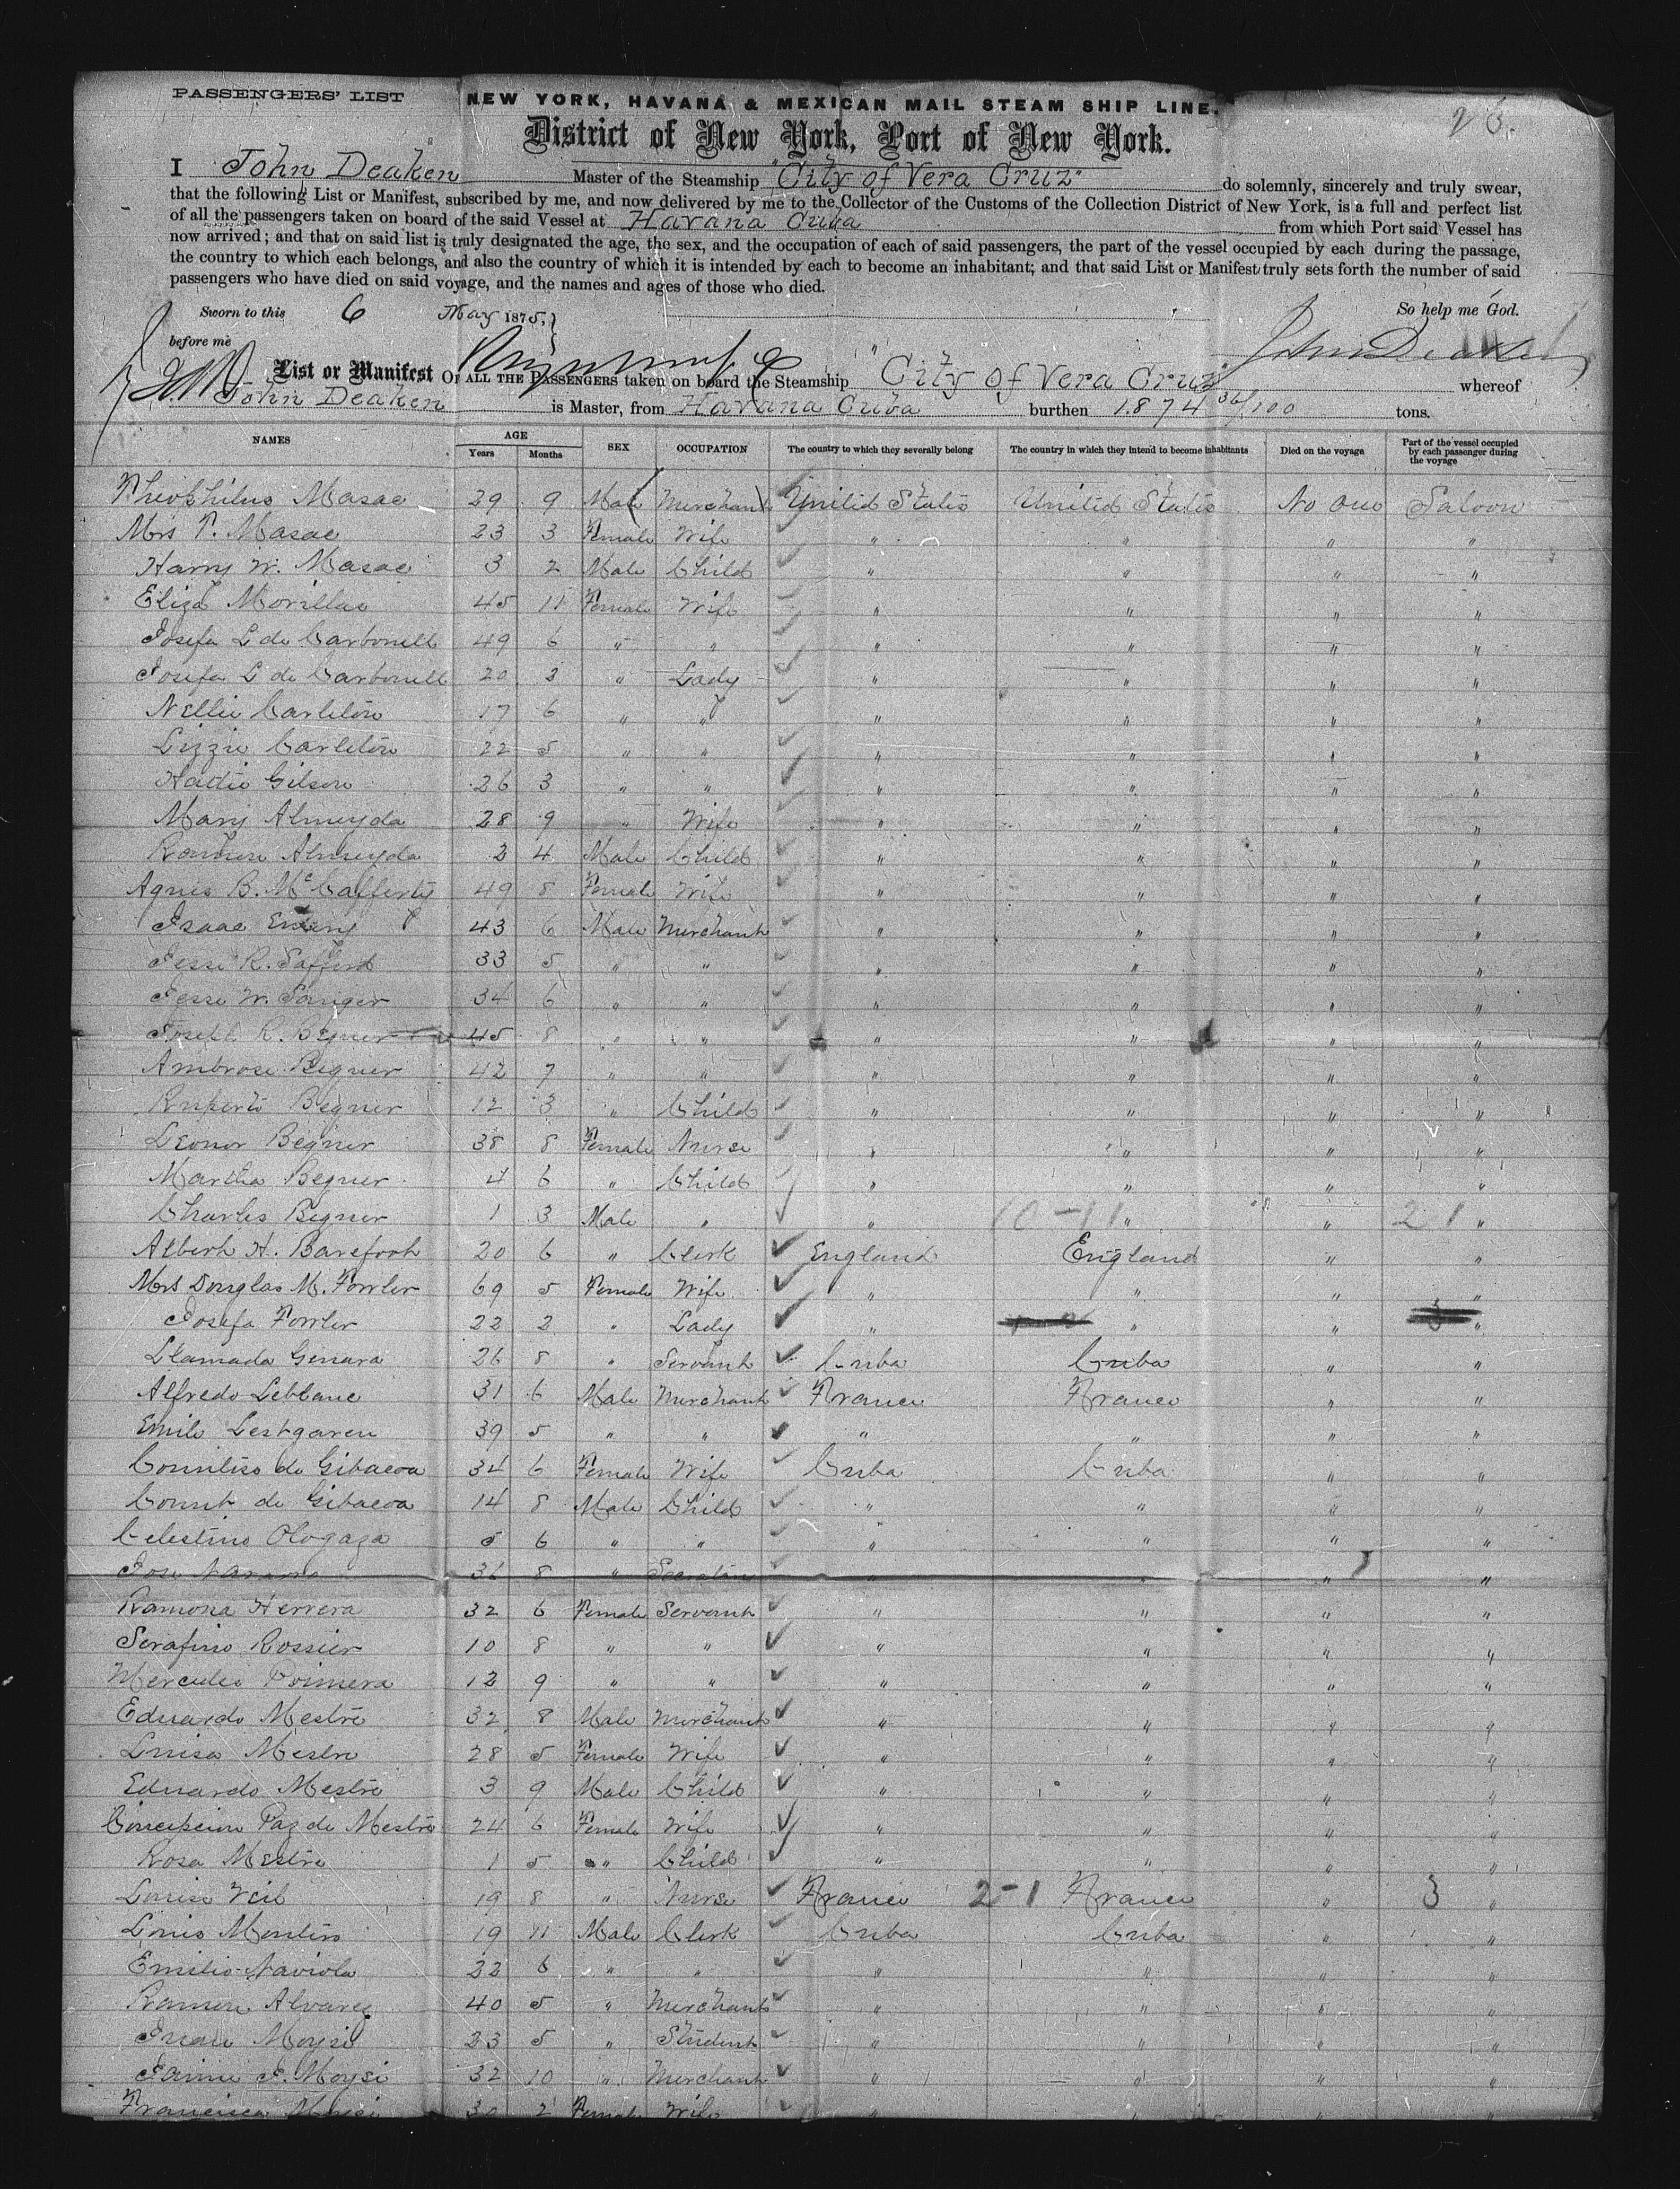 PASSENGERS' LIST
NEW YORK, HAVANA & MEXICAN MAIL STEAM SHIP LINE.
26.
District of New York, Port of New York.
I John Deaken Master of the Steamship "City of Vera Cruz" do solemnly, sincerely and truly swear,
that the following List or Manifest, subscribed by me, and now delivered by me to the Collector of the Customs of the Collection District of New York, is a full and perfect list
of all the passengers taken on board of the said Vessel at Havana Cuba from which Port said Vessel has
now arrived; and that on said list is truly designated the age, the sex, and the occupation of each of said passengers, the part of the vessel occupied by each during the passage,
the country to which each belongs, and also the country of which it is intended by each to become an inhabitant; and that said List or Manifest truly sets forth the number of said
passengers who have died on said voyage, and the names and ages of those who died.
Sworn to this 6 May 1875, So help me God.
before me John Deaken
List or Manifest OF ALL THE PASSENGERS taken on board the Steamship "City of Vera Cruz" whereof
John Deaken is Master, from Havana Cuba burthen 1.874 36/100 tons.
NAMES AGE Years Months SEX OCCUPATION The country to which they severally belong The country in which they intend to become inhabitants Died on the voyage Part of the vessel occupied by each passenger during the voyage
Theophilus Masac 29 9 Male Merchant United States United States No one Saloon
Mrs T. Masac 23 3 Female Wife " " " "
Harry W. Masac 3 2 Male Child " " " "
Eliza Morillas 45 11 Female Wife " " " "
Josefa L de Carbonell 49 6 " " " " " "
Josefa L de Carbonell 20 3 " Lady " " " "
Nellie Carleton 17 6 " " " " " "
Lizzie Carleton 22 5 " " " " " "
Hattie Gilson 26 3 " " " " " "
Mary Almeyda 28 9 " Wife " " " "
Ramon Almeyda 2 4 Male Child " " " "
Agnes B. McCafferty 49 8 Female Wife " " " "
Isaac Emery 43 6 Male Merchant " " " "
Jesse R. Safford 33 5 " " " " " "
Jesse W. Sanger 34 6 " " " " " "
Joseph R. Begner 45 8 " " " " " "
Ambrose Begner 42 7 " " " " " "
Ruperto Begner 12 3 " Child " " " "
Leonor Begner 38 8 Female Nurse " " " "
Martha Begner 4 6 " Child " " " "
Charles Begner 1 3 Male " " 10-11 " " 21 "
Albert H. Barefoot 20 6 " Clerk England England " "
Mrs Douglas M. Fowler 69 5 Female Wife " " " "
Josefa Fowler 22 2 " Lady " " " 3 "
Llamada Genara 26 8 " Servant Cuba Cuba " "
Alfredo Leblanc 31 6 Male Merchant France France " "
Emile Lestgaren 39 5 " " " " " "
Comitiso de Gibacoa 34 6 Female Wife Cuba Cuba " "
Count de Gibacoa 14 8 Male Child " " " "
Celestino Ologaza 5 6 " " " " " "
Jose Navarro 36 8 " " " " "
Ramona Herrera 32 6 Female Servant " " " "
Serafino Rossier 10 8 " " " " " "
Mercedes Primera 12 9 " " " " " "
Eduardo Mestre 32 8 Male Merchant " " " "
Luisa Mestre 28 5 Female Wife " " " "
Eduardo Mestre 3 9 Male Child " " " "
Concepcion Paz de Mestre 24 6 Female Wife " " " "
Rosa Mestre 1 5 " Child " " " "
Louise Veil 19 8 " Nurse France 2-1 France " 3 "
Louis Montiro 19 11 Male Clerk Cuba Cuba " "
Emilio Naviola 22 6 " " " " " "
Ramon Alvarez 40 5 " Merchant " " " "
Juan Moysi 23 5 " Student " " " "
Jaime J. Moysi 32 10 " Merchant " " " "
Francisca Moysi 30 2 Female Wife " " " "